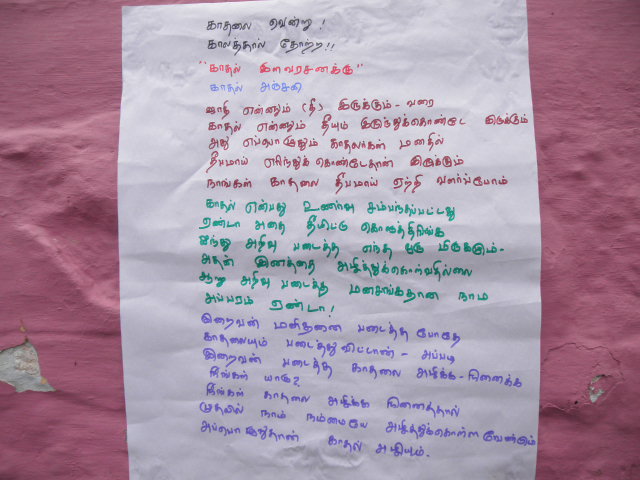 காதலை வென்று!
காலத்தால் தோற்ற!!
"காதல் இளவரசனுக்கு"
காதல் அஞ்சலி
ஜாதி என்னும் (தீ) இருக்கும் - வரை
காதல் என்னும் தீயும் இருந்துக்கொண்டே இருக்கும்
அது எப்பொழுதும் காதலர்கள் மனதில்
தீபமாய் எரிந்துக் கொண்டேதான் இருக்கும்
நாங்கள் காதலை தீபமாய் ஏற்றி வளர்ப்போம்
காதல் என்பது உணர்வு சம்பந்தப்பட்டது
ஏண்டா அதை தீயிட்டு கொளுத்திரிங்க
ஐந்து அறிவு படைத்த எந்த ஒரு மிருக்கும் -
அதன் இனத்தை அழித்துக்கொள்வதில்லை
ஆறு அறிவு படைத்த மனசங்கதான நாம
அப்பரம் ஏண்டா!
இறைவன் மனிதனை படைத்த போதே
காதலையும் படைத்து விட்டான் - அப்படி
இறைவன் படைத்த காதலை அழிக்க - நினைக்க
நீங்கள் யார்?
நீங்கள் காதலை அழிக்க நினைத்தால்
முதலில் நாம் நம்மையே அழித்துக்கொள்ள வேண்டும்
அப்பொழுதுதான் காதல் அழியும்.